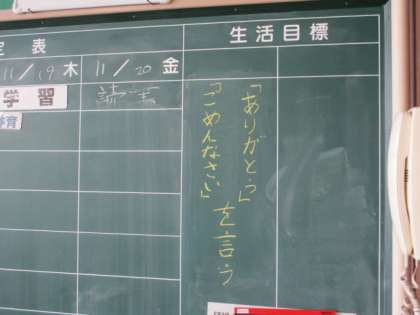 定表
生活目標
11/19 木
11/20 金
学習
体育
「ありがとう」
「ごめんなさい」を言う